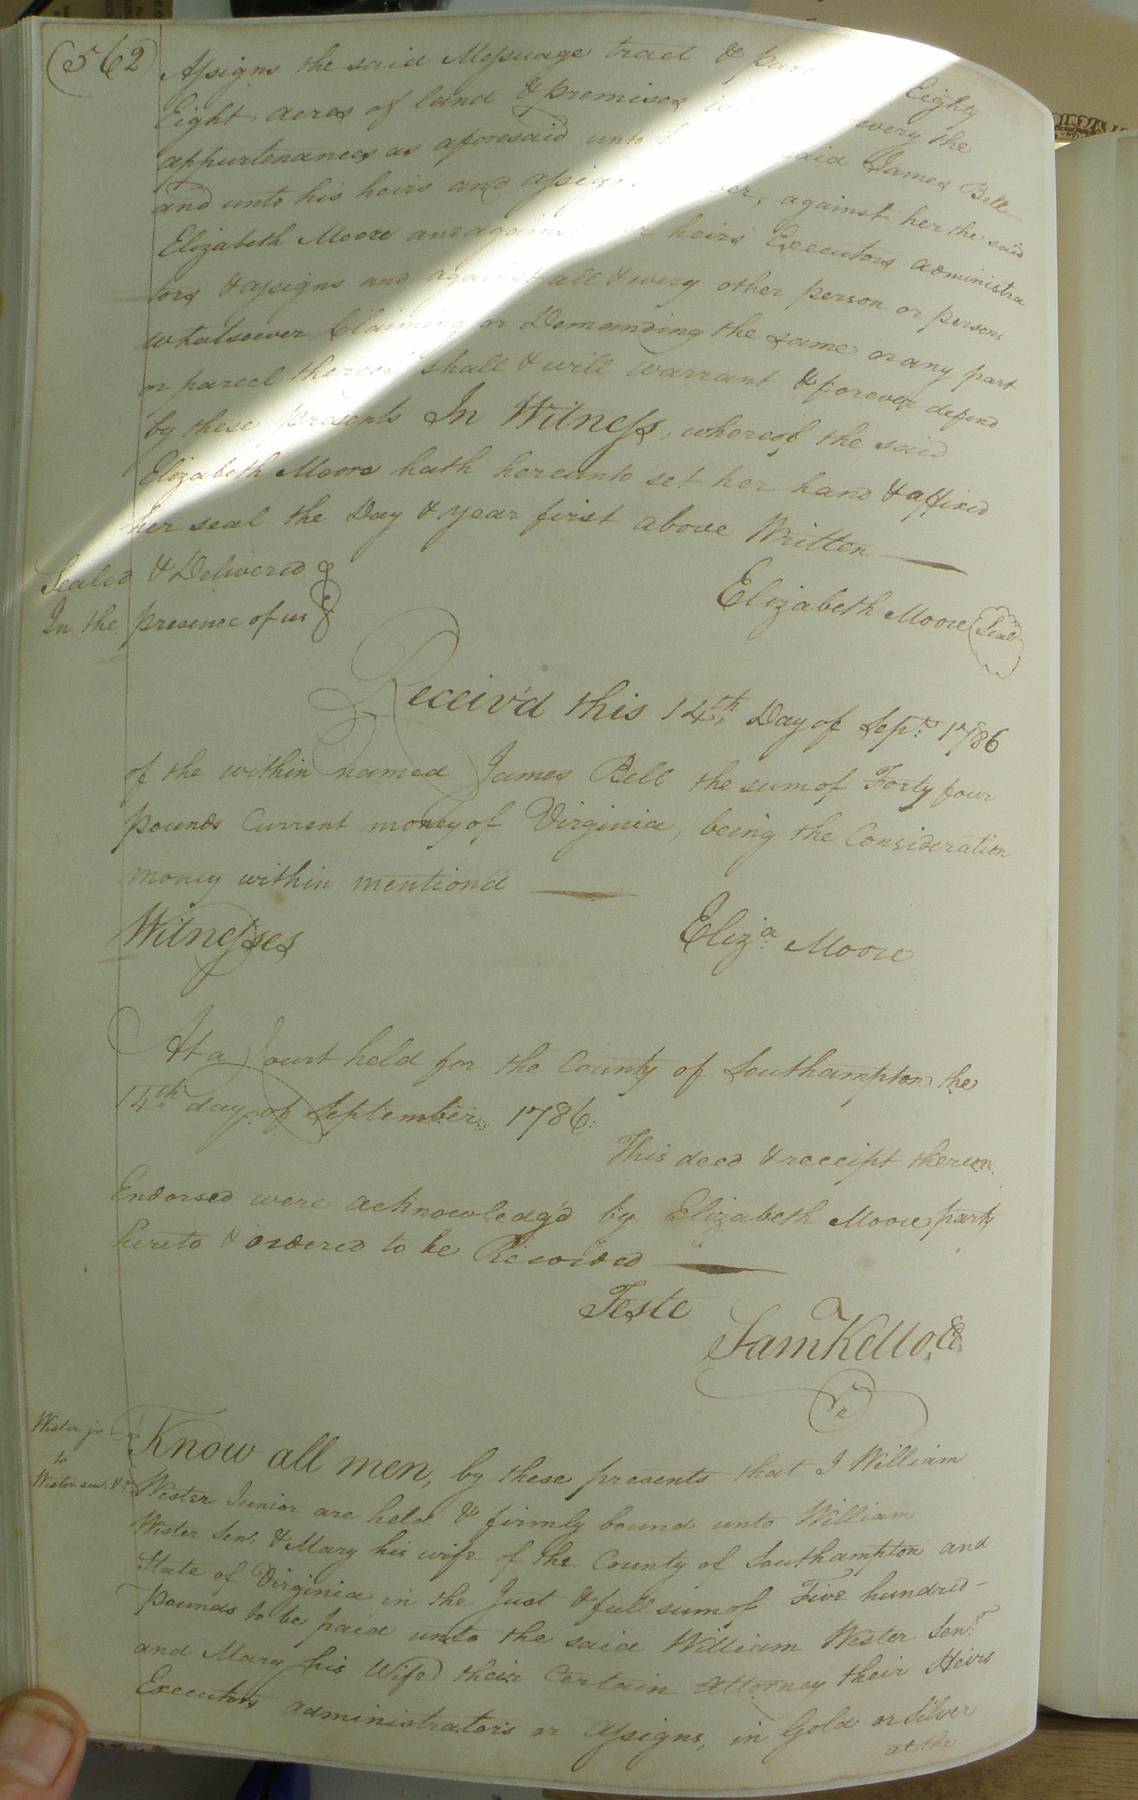 562
Assigns the said Messuage tract & Eighty
Eight acres of land & premises every the
appurtenances as aforesaid unto said James Bell
and unto his heirs and assigns against her the said
Elizabeth Moore and against heirs Executors administra
tors & assigns and against all & every other person or persons
whatsoever Claiming or Demanding the same or any part
or parcel thereof shall & will warrant & forever defend
by these presents In Witness, whereof the said
Elizabeth Moore hath hereunto set her hand & affixed
her seal the Day & year first above Written
Sealed & Delivered
In the presence of us
Elizabeth Moore Seal
Receiv'd this 14th Day of Sepr. 1786
of the within named James Bell the sum of Forty four
pounds Current money of Virginia, being the Consideration
money within mention'd
Witnesses
Eliza. Moore
At a Court held for the County of Southampton the
14th day of September 1786.
This deed & receipt thereon
Endorsed were acknowledg'd by Elizabeth Moore party
hereto & ordered to be Recorded
Teste
Sam Kello, C
Wester jr
to
Wester sen. &c
Know all men, by these presents that I William
Wester Junior are held & firmly bound unto William
Wester Senr. & Mary his wife of the County of Southampton and
State of Virginia in the Just & full sum of Five hundred
Pounds to be paid unto the said William Wester Senr.
and Mary his Wife their Certain Attorney their Heirs
Executors administrators or Assigns, in Gold or Silver
at the